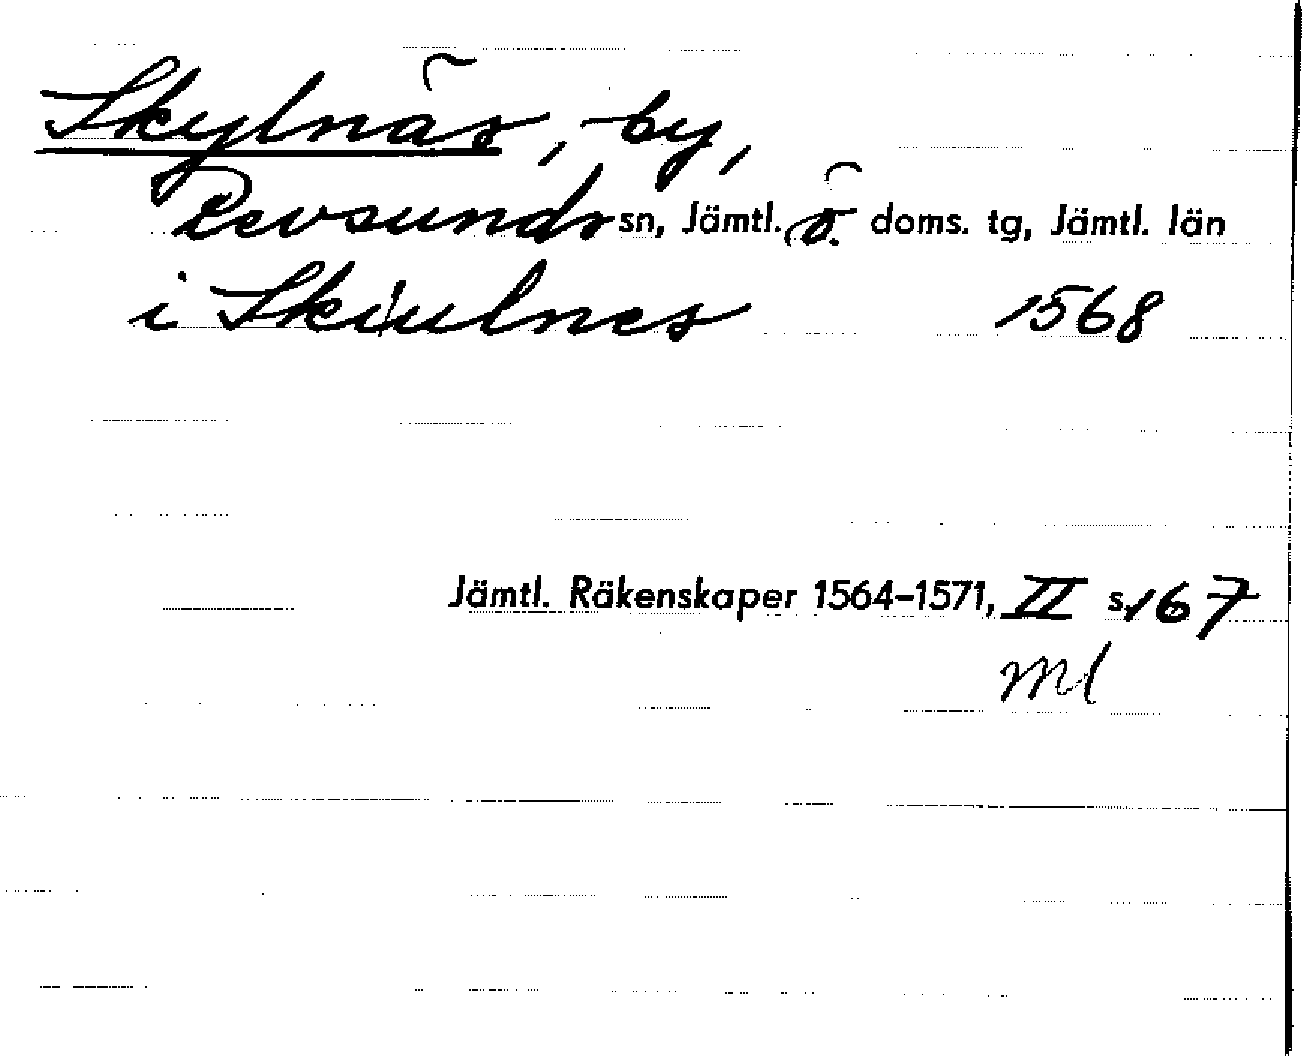 Skylnäs, by,
Revsunds sn, Jämtl. ö. doms. tg, Jämtl. län
i Skiulnes 1568
Jämtl. Räkenskaper 1564-1571, II s. 167